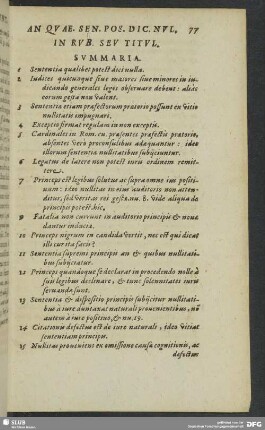 AN QVAE. SEN. POS. DIC. NVL. 77
IN RVB. SEV TITVL.
SVMMARIA.
1 Sententia quælibet potest dici nulla.
2 Iudices quotcunque siue maiores siue minores in iu
dicando generales leges obseruare debent: alias
eorum gesta non valent.
3 Sententiæ etiam præfectorum prætorio possunt ex vitio
nullitatis impugnari.
4 Exceptio firmat regulam in non exceptis.
5 Cardinales in Rom. cu. præsentes præfectis prætorio,
absentes verò proconsulibus adæquantur: ideo
illorum sententiæ nullitatibus subijciuntur.
6 Legatus de latere non potest iuris ordinem remit-
tere.
7 Princeps est legibus solutus ac supra omne ius positi-
uum: ideo nullitas in eius auditorio non atten-
ditur, sed veritas rei gestæ. nu. 8. Vide aliqua de
principis potest. hic,
9 Fatalia non currunt in auditorio principis & nouæ
dantur inducia.
10 Princeps nigrum in candida vertit, nec est qui dicat
illi cur ita facis?
11 Sententia supremi principis an & quibus nullitati-
bus subijciatur.
12 Princeps quandoque se declarat in procedendo nolle à
iuris legibus declinare, & tunc solennitates iuris
seruandæ sunt.
13 Sententia & dispositio principis subijcitur nullitati-
bus à iure duntaxat naturali prouenientibus, nõ
autem à iure positiuo, & nu. 19.
14 Citationis defectus est de iure naturali, ideo vitiat
sententiam principis.
15 Nullitas proueniens ex omissione causæ cognitionis, ac
defectus
SLUB
DFG